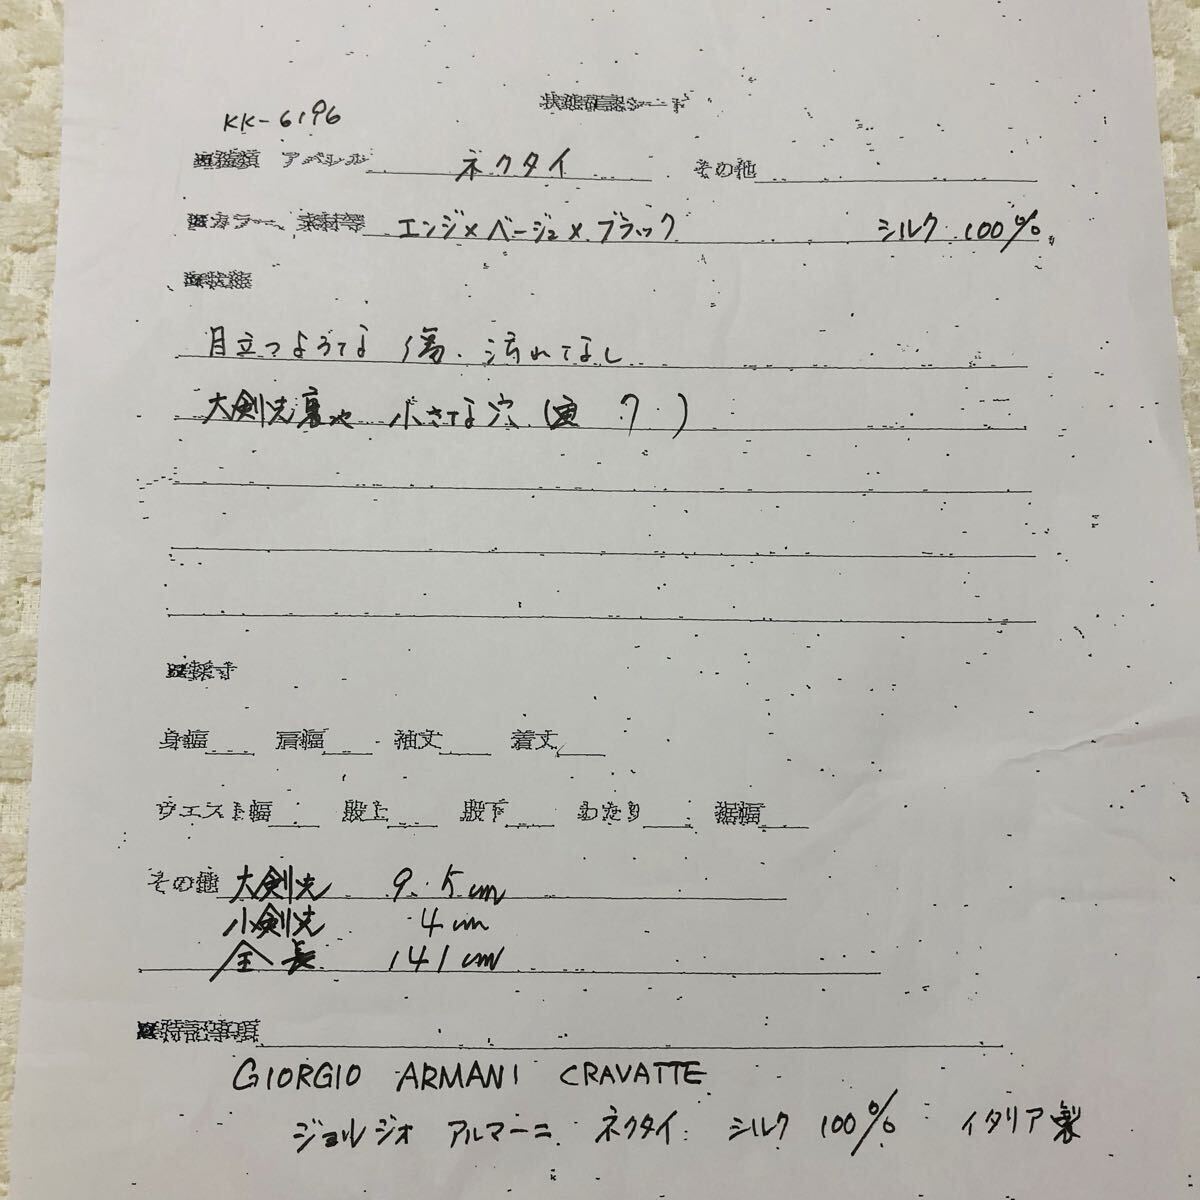 状態確認シート
KK-6196
■種類 アパレル ネクタイ その他
■カラー、素材等 エンジ×ベージュ×ブラック シルク 100%
■状態
目立つような 傷、汚れてなし
大剣先裏地 小さな穴 ( 7 )
■採寸
身幅 肩幅 袖丈 着丈
ウエスト幅 股上 股下 わたり 裾幅
その他 大剣先 9.5cm
小剣先 4cm
全長 141cm
■特記事項
GIORGIO ARMANI CRAVATTE
ジョルジオ アルマーニ ネクタイ シルク 100% イタリア製